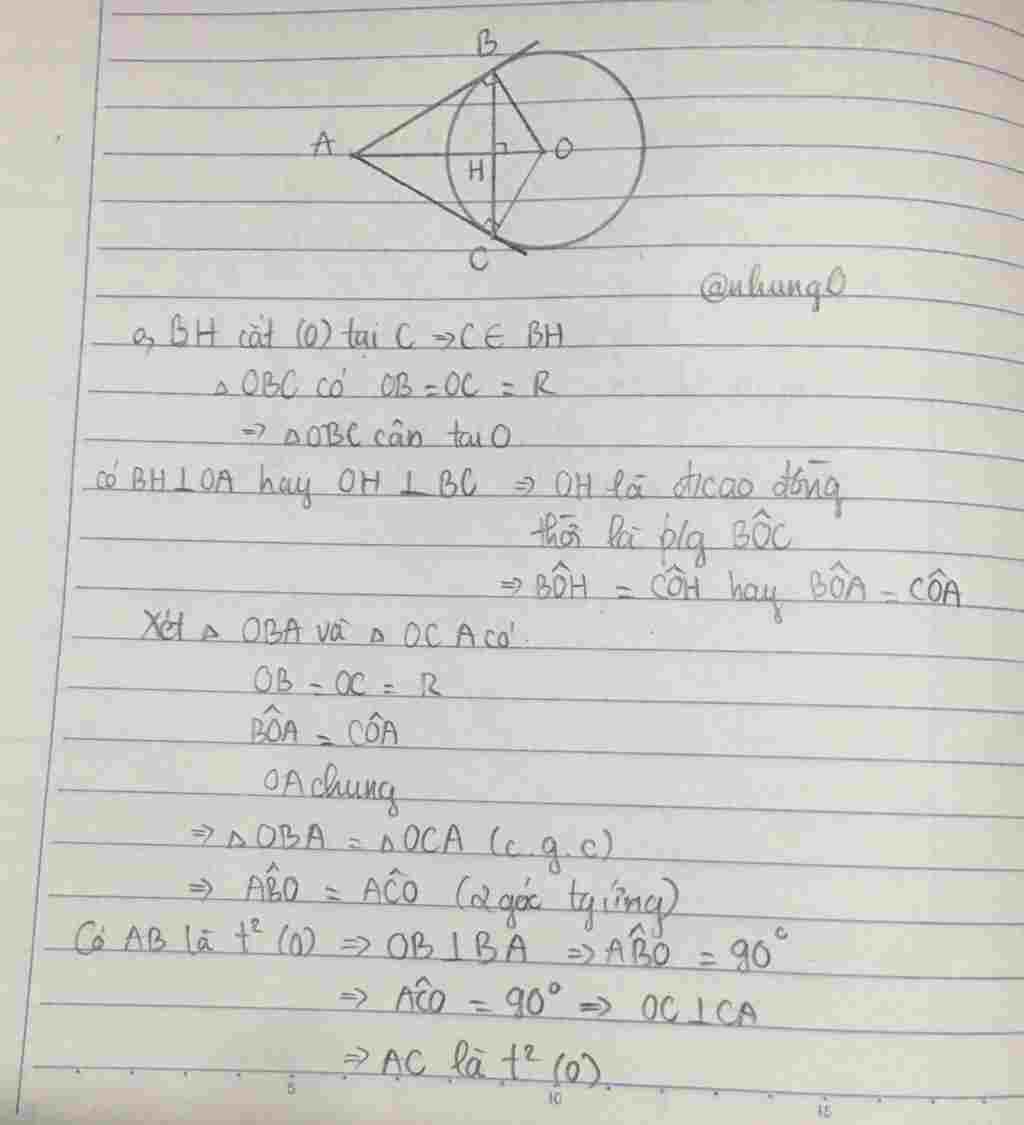 B
A
O
H
C
@nhung0
a, BH cắt (O) tại C ⇒ C ∈ BH
△OBC có OB = OC = R
⇒ △OBC cân tại O
có BH ⊥ OA hay OH ⊥ BC ⇒ OH là đ/cao đồng
thời là p/g BÔC
⇒ BÔH = CÔH hay BÔA = CÔA
Xét △ OBA và △ OCA có
OB = OC = R
BÔA = CÔA
OA chung
⇒ △OBA = △OCA (c.g.c)
⇒ AB̂O = AĈO (2 góc tg ứng)
Có AB là t² (O) ⇒ OB ⊥ BA ⇒ AB̂O = 90°
⇒ AĈO = 90° ⇒ OC ⊥ CA
⇒ AC là t² (O)
5 10 15